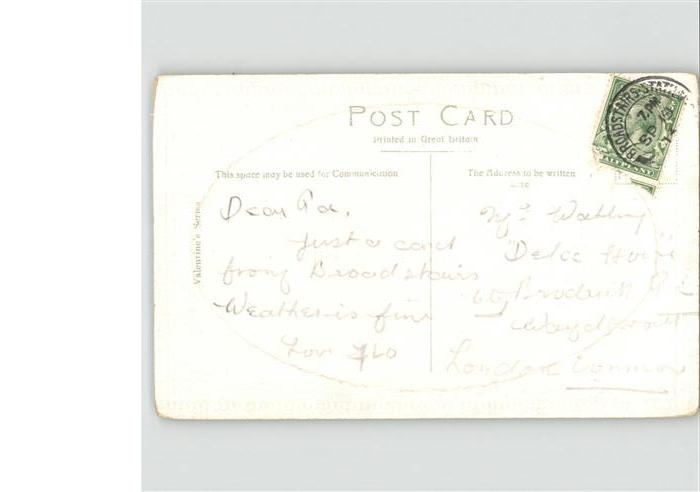 POST CARD
Printed in Great Britain
This space may be used for Communication
The Address to be written
here
Valentine's Series
BROADSTAIRS
7 PM
HALFPENNY
Dear Pa,
Just a card
from Broadstairs
Weather is fine
Love Flo
Delce House
Road
Wandsworth
London Common